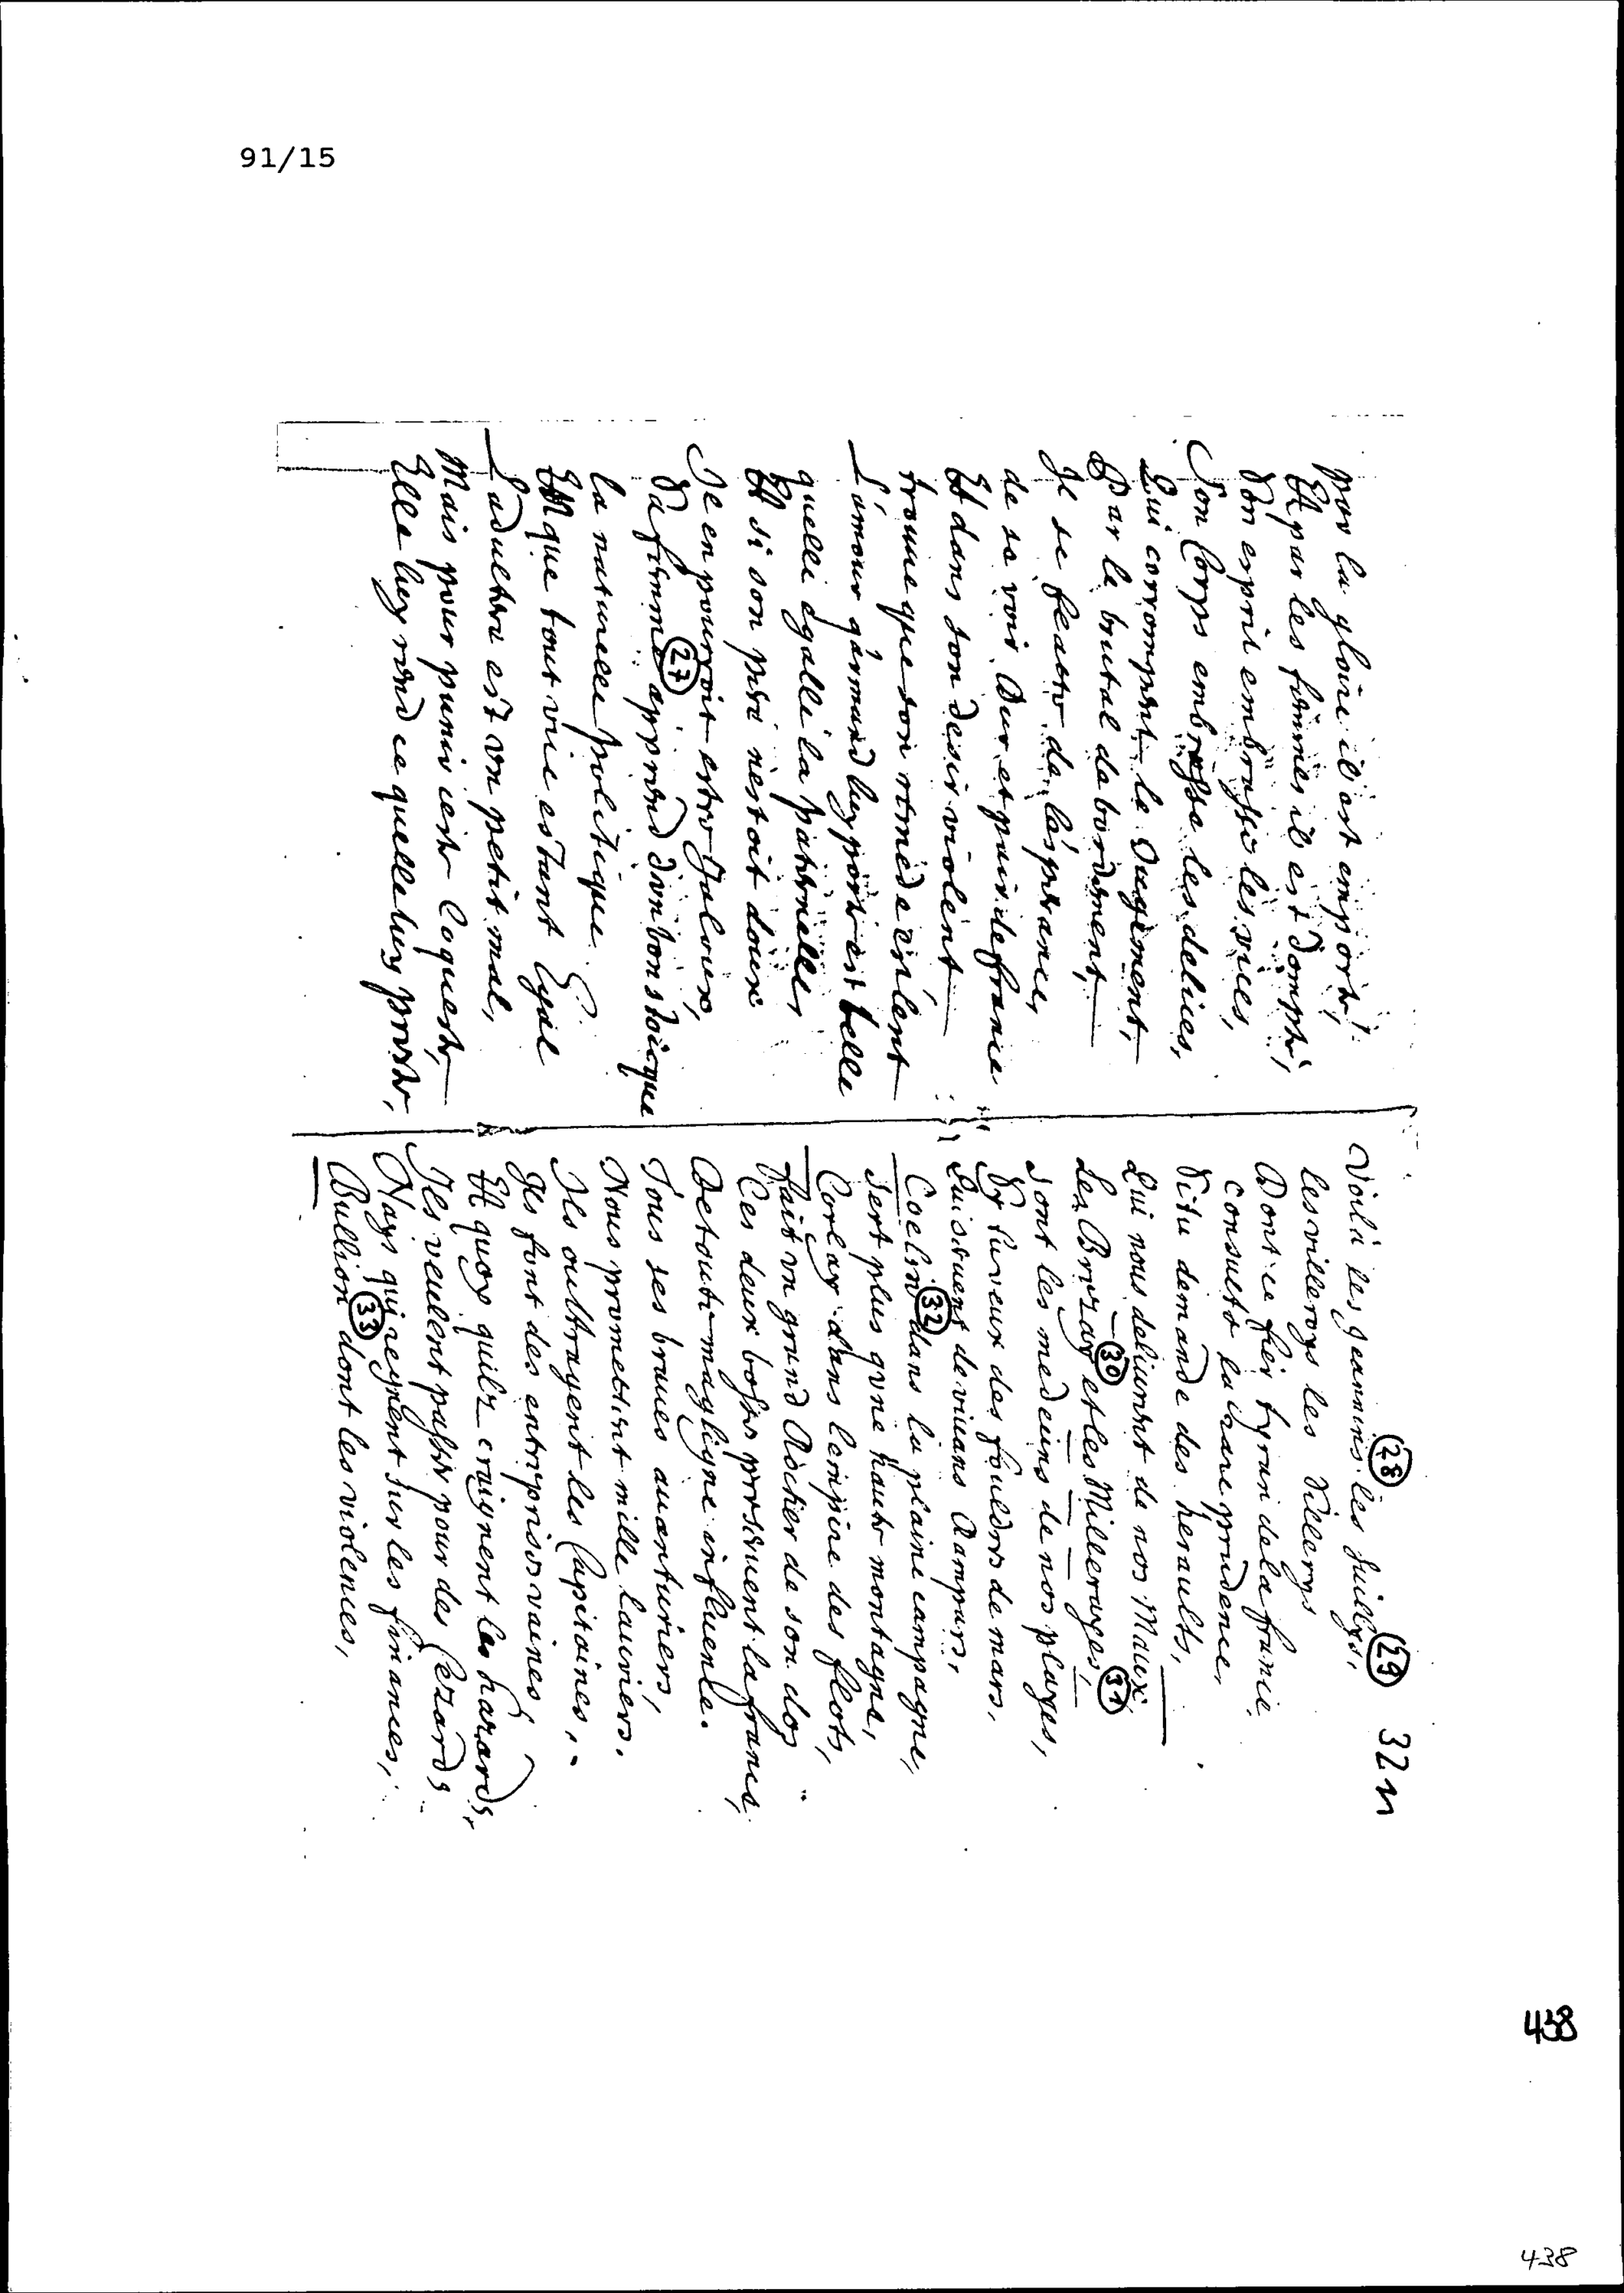 91/15
par la gloire il est emporté,
Et par les femmes il est dompté,
Son esprit embrasse les vices,
Son Corps embrasse les delices,
Qui corrompent le Jugement,
Par le brutal debordement,
Il se flatte de lesperance,
de se voir Duc et pair de france
Et dans son desir violent
trouve que son remede est lent
Lamour quarmand luy porte est belle
quelle egalle la paternelle,
Et si son pere nestoit doux
Il en pourroit estre Jaloux,
27
Sa femme apprend dun bon stoicque
la naturelle politique
Et que tout vice estant Egal
Ladultere est un petit mal,
Mais pour punir ceste Coquette,
Elle luy rend ce quelle luy preste,
28 29 32 n
Voilà les Jeannins les Suillys,
les villeroys les Sillerys
Dont ce fier tyran de la france
consulte la rare prudence,
Si tu demande des heraults,
Qui nous delivrent de nos Maux
30 31
Les Brezay et les Millerayes,
sont les medecins de nos playes,
Sy faveux des fouldres de mars,
Qui servent de vivans Rampars,
32
Coeslin dans la plaine campagne,
sert plus qune haute montagne,
Corlay dans lempire des flots,
fait un grand Rocher de son dos
Ces deux bosses preservent la france,
De toute maligne influence.
Tous ses braves avanturiers,
Nous promettent mille lauriers.
Ils oultragent les Capitaines,
Ils font des entreprises vaines,
Et quoy quilz craignent les hazards,
Ils veulent passer pour des Cezards
Nays qui regnent sur les finances,
33
Bullion dont les violences,
438
438